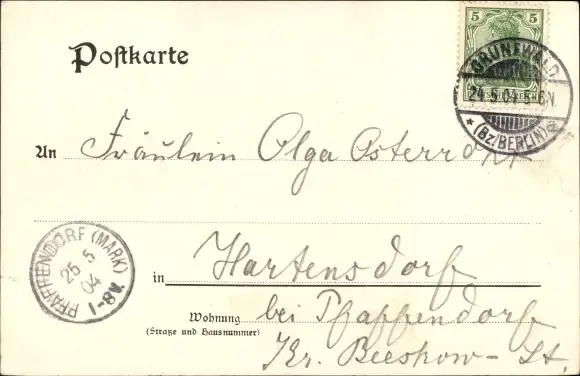 Postkarte
5 5
GRUNEWALD
24.5.04 5-6N.
* (Bz. BERLIN) a
An Fräulein Olga Osterrodt
PFAFFENDORF (MARK)
25 5
04
1-8V.
in Hartensdorf
Wohnung bei Pfaffendorf
(Straße und Hausnummer)
Kr. Beeskow-St.